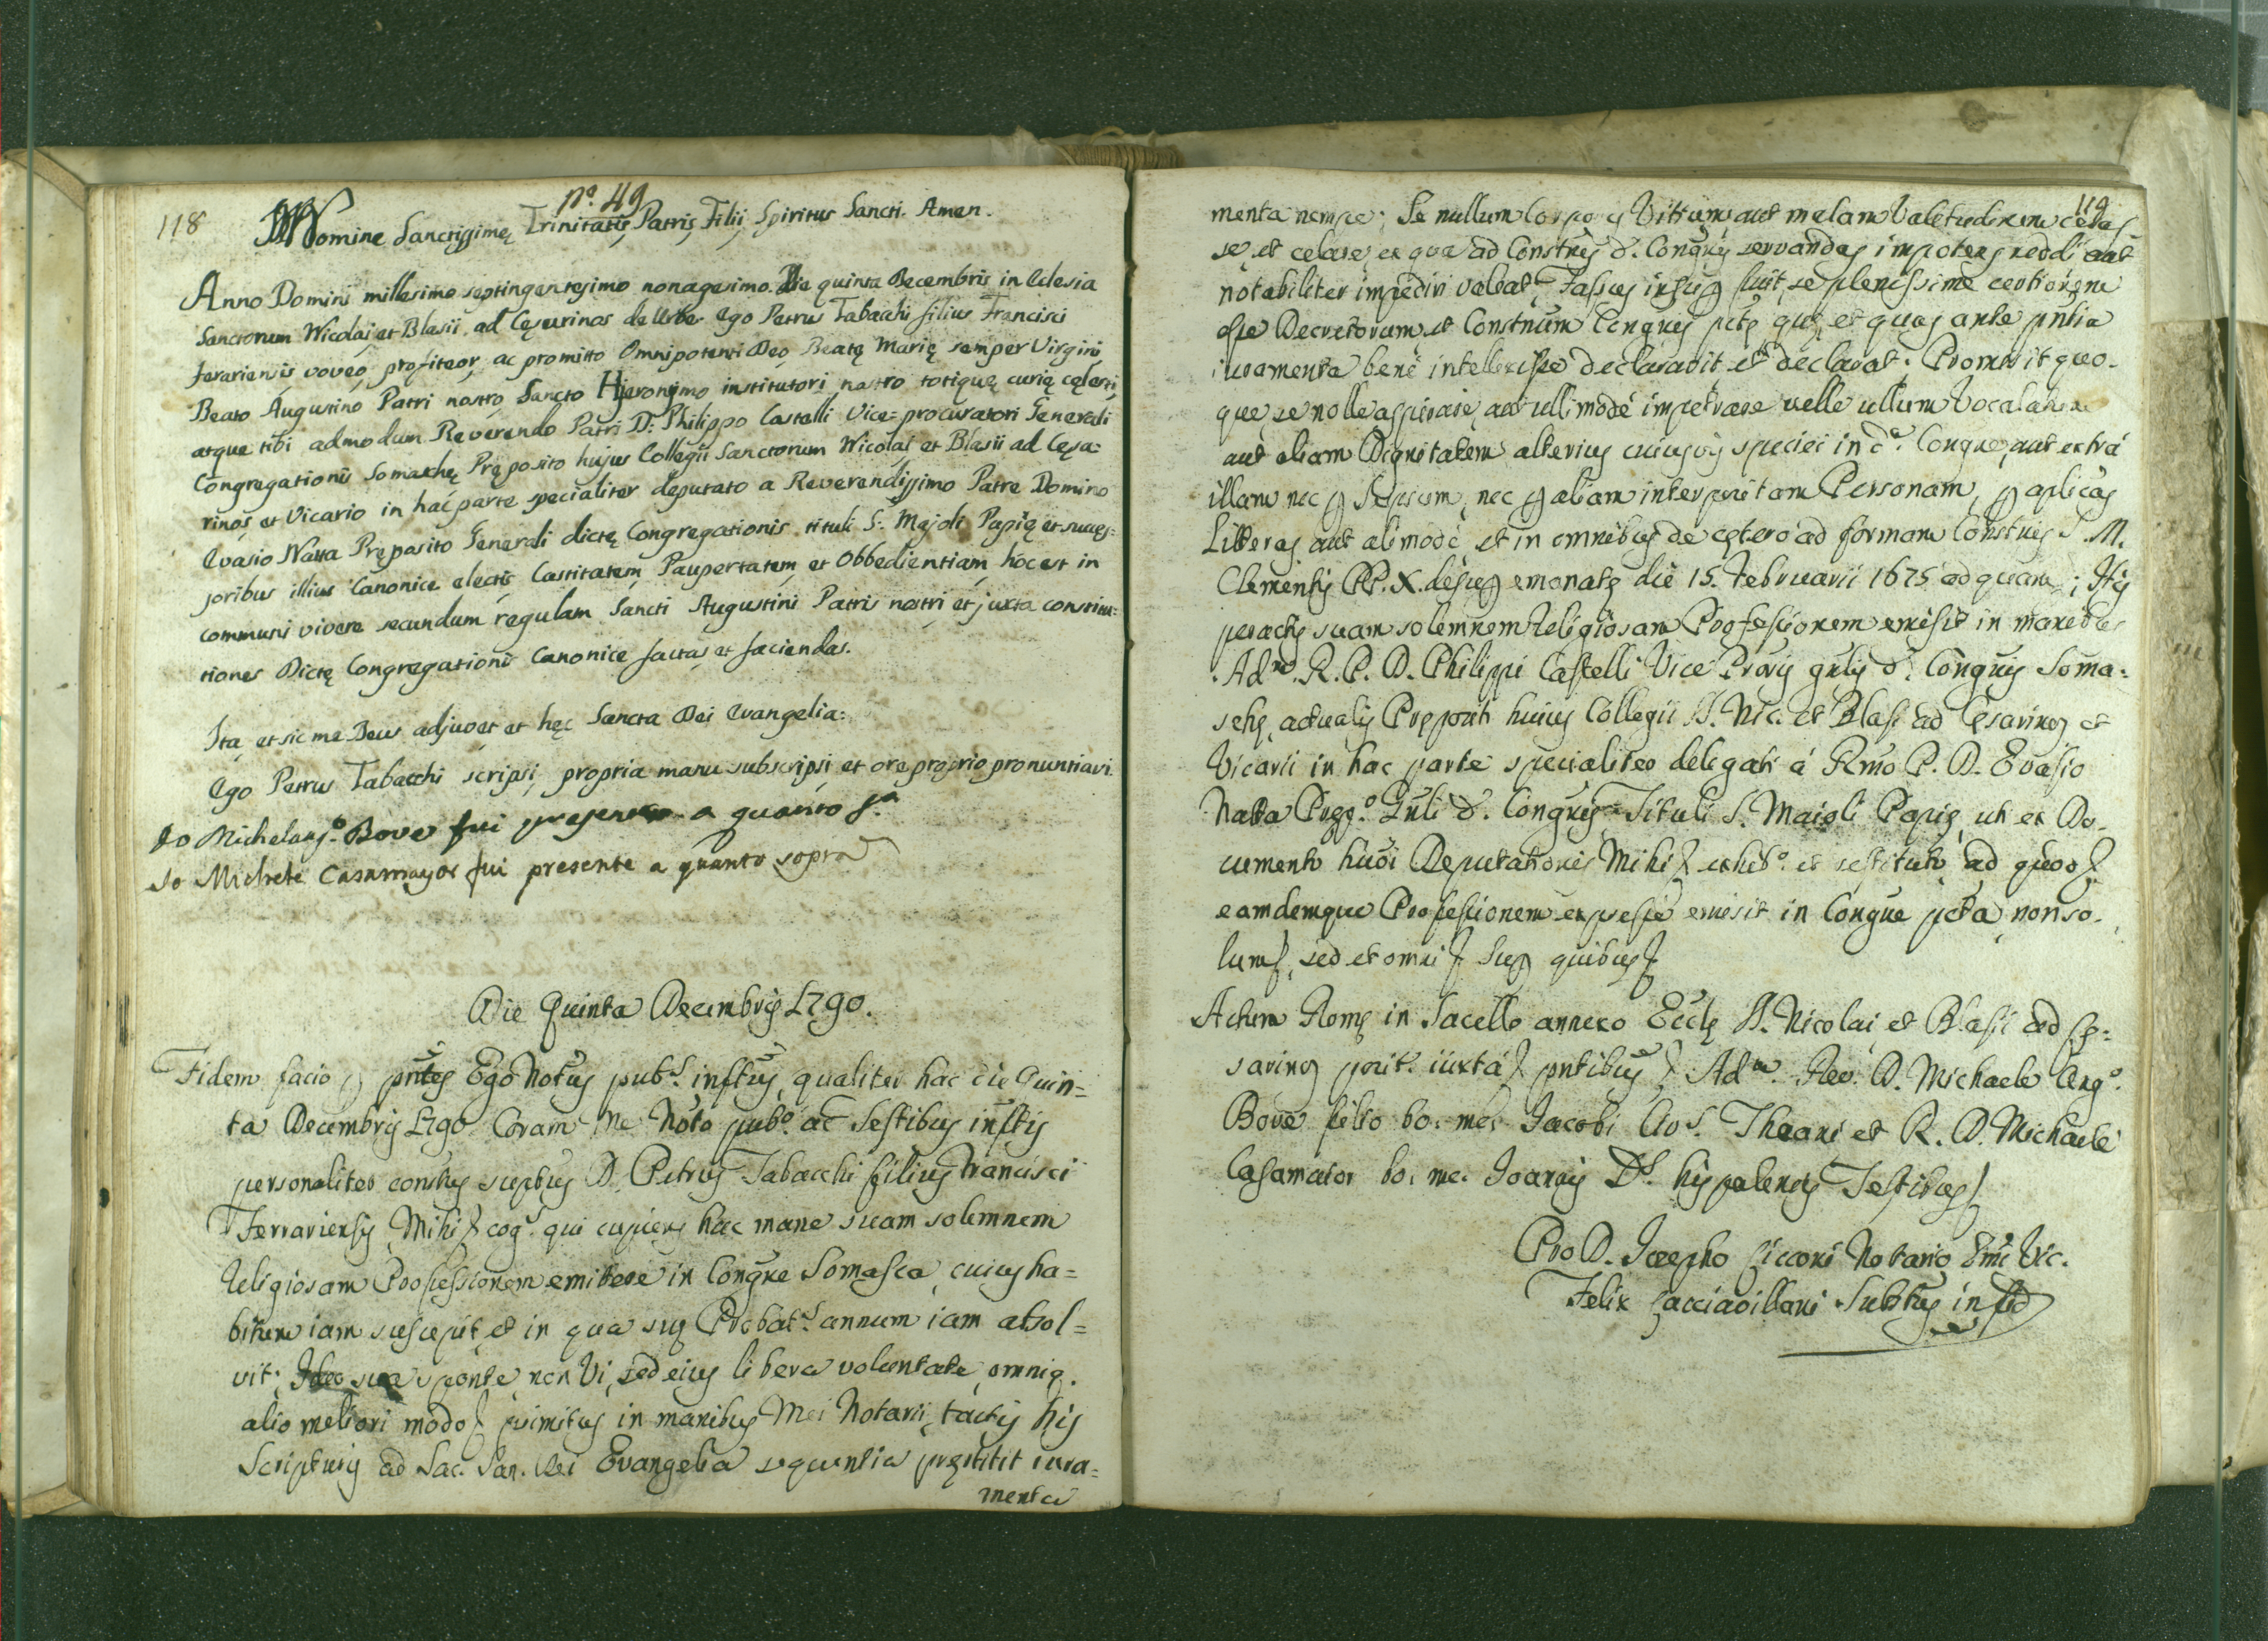 118
nº. 49
In Nomine Sanctissimę Trinitatis, Patris, Filii, Spiritus Sancti. Amen.
Anno Domini millesimo septingentesimo nonagesimo. Die quinta Decembris in Eclesia
Sanctorum Nicolai et Blasii ad Cęsarinos de Urbe Ego Petrus Tabacchi filius Francisci
ferariensis voveo, profiteor, ac promitto Omnipotenti Deo, Beatę Marię semper Virgini,
Beato Augustino Patri nostro Sancto Hjeronymo institutori nostro totique curię cęlesti,
atque tibi admodum Reverendo Patri D: Philippo Castelli Vice-procuratori Generali
Congregationis Somaschę Pręposito hujus Collegii Sanctorum Nicolai et Blasii ad Cęsa=
rinos et Vicario in hac parte specialiter deputato a Reverendissimo Patre Domino
Evasio Natta Pręposito Generali dictę Congregationis tituli S: Majoli Papię et succes=
soribus illius Canonice electis Castitatem, Paupertatem, et Obbedientiam, hoc est in
communi vivere secundum regulam Sancti Augustini Patris nostri et juxta constitu=
tiones Dictę Congregationis Canonice factas et faciendas.
Ita et sic me Deus adjuvet et hęc Sancta Dei Evangelia:
Ego Petrus Tabacchi scripsi, propria manu subscripsi et ore proprio pronuntiavi.
Io Michelang.º Bove fui presente a quanto s.ª
Io Michele Casamayor fui presente a quanto sopra
Die Quinta Decembris 1790.
Fidem facio p pntes Ego Notus pub.s inftus, qualiter hac die Quin=
ta Decembris 1790 Coram Me Noto pub.º ac Testibus inftis
personaliter constus suptus D. Petrus Tabacchi filius Francisci
Ferrariensis, Mihi cog.s qui cupiens hac mane suam solemnem
Religiosam Professionem emittere in Congne Somasca, cuius ha=
bitum iam suscepit, et in qua suę Probat.s annum iam absol=
vit; Ideo sua sponte, non Vi, sed eius libera voluntate, omniq.
alio meliori modo primitus in manibus Mei Notarii, tactis his
Scripturis ad Sac. San. Dei Evangelia sequentia pręstitit iura=
menta
119
menta nempe; Se nullum Corporis Vitium, aut malam Valetudinem celas
se, et celare, ex qua ad Constnes d. Congnis servandas impotens reddi aut
notabiliter impediri valeat, Fassus insup fuit, se plenissime certiorem
esse Decretorum et Constnum Congnis pctę quę, et quas ante pntia
iuramenta bene intellexisse declaravit, et declarat; Promisit quo-
que se nolle aspirare, aut ullimode impetrare velle ullum Vocalatum
aut aliam Dignitatem alterius cuiusvis speciei in d.ª Congne, aut extra
illam nec p Seipsum, nec p aliam interpositam Personam, p aplicas
Litteras aut alimode, et in omnibus de cętero ad formam Constnis S. M.
Clementis PP. X. desup emanatę die 15. Februarii 1675 ad quam; His
peractis suam solemnem Religiosam Professionem emisit in manibus
Ad.m R. P. D. Philippi Castelli Vice Prvris gnlis d. Congnis Soma=
schę, actualis Pręposti huius Collegii SS. Nic. et Blasi ad Cęsarinos et
Vicarii in hac parte specialiter delegati á Rmo P. D. Evasio
Natta Pręp.º Gnli d. Congnis Tituli S. Maioli Papię, ut ex Do-
cumento huoi Deputationis Mihi exhib.º et restituto, ad quod
eamdemque Professionem expresse emisit in Congne pcta, non so-
lum, sed et omni Sup quibus
Actum Romę in Sacello annexo Eccle SS. Nicolai et Blasii ad Cę=
sarinos posit. iuxta pntibus Ad.m Rev. D. Michaele Ang.º
Bove filio bo: me: Jacobi et R. D. Michaele
Casamaior bo. me. Joannis Hispalensis Testibus
Pro D. Josepho Cicconi Notario Emi Vic.
Felix Cacciavillani Substus in fid